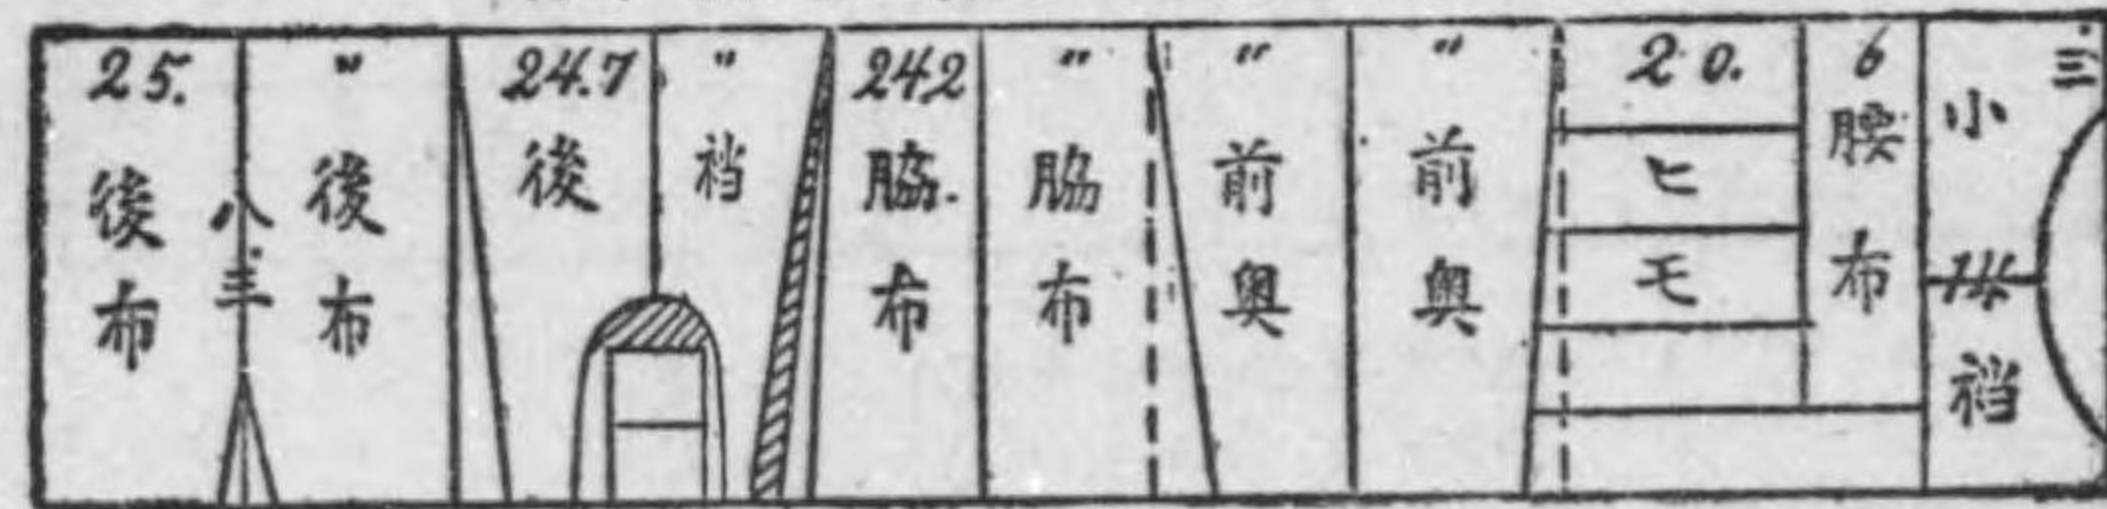 25.
後布
八.三
〃
後布
24.7
後
〃
襠
242
脇.
布
〃
脇布
〃
前奥
〃
前奥
20.
ヒ
モ
6
腰布
小
14
襠
三.